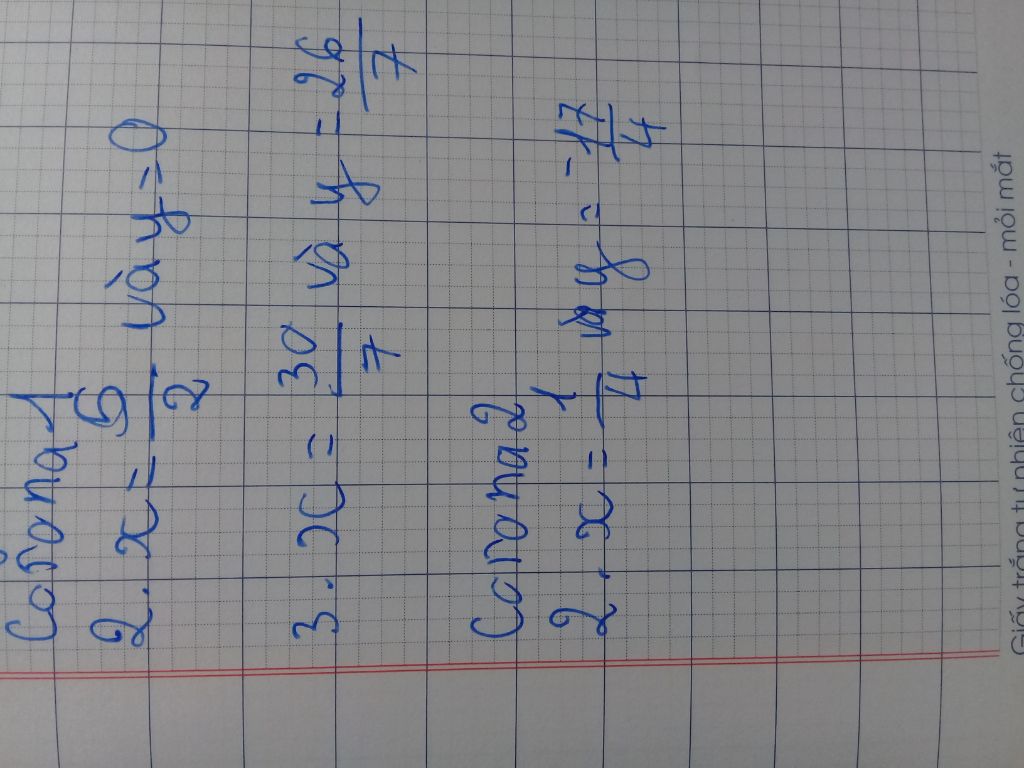 Corona 1
2. x = 5/2 và y = 0
3. x = 30/7 và y = 26/7
Corona 2
2. x = 1/4 và y = -17/4
Giấy trắng tự nhiên chống lóa - mỏi mắt